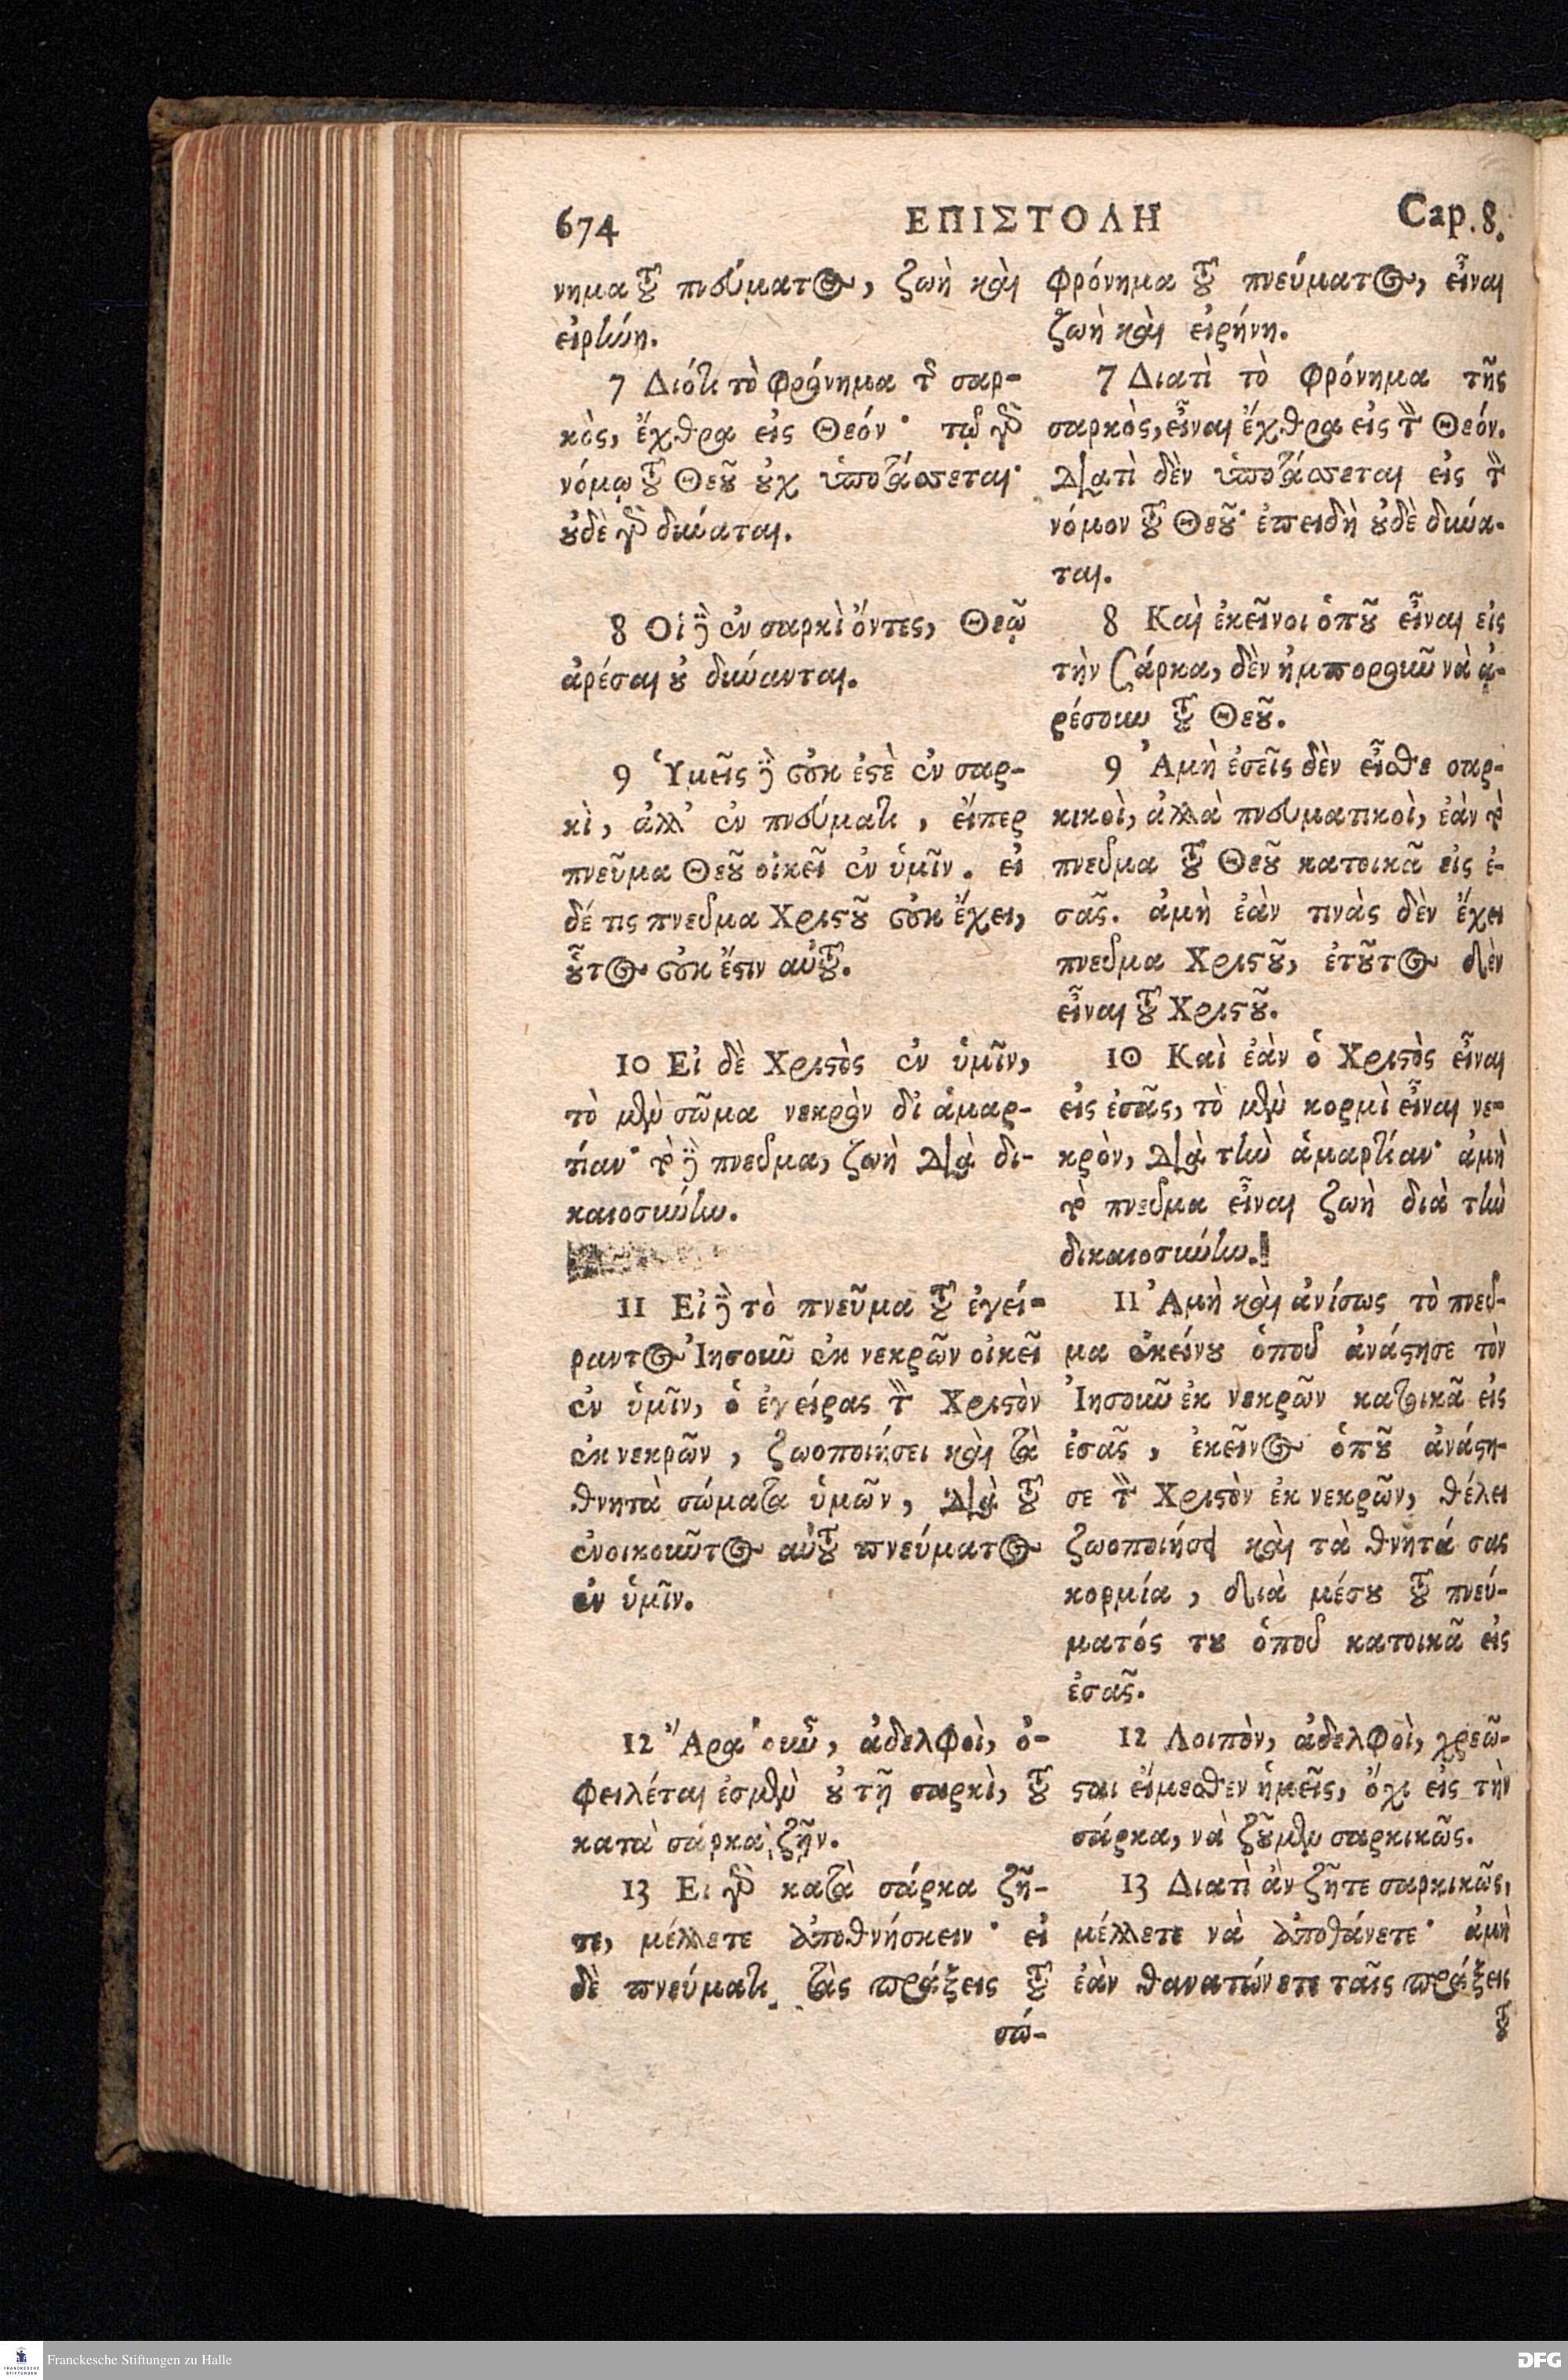 674 ΕΠΙΣΤΟΛΗ Cap. 8.
νημα τȣ͂ πνεύματος, ζωὴ καὶ
εἰρήνη.
7 Διότι τὸ φρόνημα τῆς σαρ-
κὸς, ἔχθρα εἰς Θεόν· τῷ γὰρ
νόμῳ τȣ͂ Θεȣ͂ ȣ̓χ ὑποτάσσεται·
ȣ̓δὲ γὰρ δύναται.
8 Οἱ δὲ ἐν σαρκὶ ὄντες, Θεῷ
ἀρέσαι ȣ̓ δύνανται.
9 Ὑμεῖς δὲ οὐκ ἐϛὲ ἐν σαρ-
κὶ, ἀλλ' ἐν πνεύματι, εἴπερ
πνεῦμα Θεȣ͂ οἰκεῖ ἐν ὑμῖν. εἰ
δέ τις πνεῦμα Χριϛȣ͂ οὐκ ἔχει,
ȣ̓͂τος οὐκ ἔϛιν αὐτȣ͂.
10 Εἰ δὲ Χριϛὸς ἐν ὑμῖν,
τὸ μὲν σῶμα νεκρὸν δι' ἁμαρ-
τίαν· τὸ δὲ πνεῦμα, ζωὴ διὰ δι-
καιοσύνην.
11 Εἰ δὲ τὸ πνεῦμα τȣ͂ ἐγεί-
ραντος Ἰησοῦν ἐκ νεκρῶν οἰκεῖ
ἐν ὑμῖν, ὁ ἐγείρας τὸν Χριϛὸν
ἐκ νεκρῶν, ζωοποιήσει καὶ τὰ
θνητὰ σώματα ὑμῶν, διὰ τȣ͂
ἐνοικοῦντος αὐτȣ͂ πνεύματος
ἐν ὑμῖν.
12 Ἄρα οὖν, ἀδελφοὶ, ὀ-
φειλέται ἐσμὲν ȣ̓ τῇ σαρκὶ, τȣ͂
κατὰ σάρκα ζῆν.
13 Ει γὰρ κατὰ σάρκα ζῆ-
τε, μέλλετε ἀποθνήσκειν· εἰ
δὲ πνεύματι τὰς πράξεις τȣ͂
σώ-
φρόνημα τȣ͂ πνεύματος, εἶναι
ζωὴ καὶ εἰρήνη.
7 Διατὶ τὸ φρόνημα τῆς
σαρκὸς, εἶναι ἔχθρα εἰς τὸν Θεόν.
διατὶ δὲν ὑποτάσσεται εἰς τὸν
νόμον τȣ͂ Θεȣ͂· ἐπειδὴ ȣ̓δὲ δύνα-
ται.
8 Καὶ ἐκεῖνοι ὁπȣ͂ εἶναι εἰς
τὴν σάρκα, δὲν ἠμποροῦν νὰ ἀ-
ρέσουν τȣ͂ Θεȣ͂.
9 Ἀμὴ ἐσεῖς δὲν εἶσθε σαρ-
κικοὶ, ἀλλὰ πνευματικοὶ, ἐὰν τὸ
πνεῦμα τȣ͂ Θεȣ͂ κατοικᾶ εἰς ἐ-
σᾶς. ἀμὴ ἐὰν τινὰς δὲν ἔχει
πνεῦμα Χριϛȣ͂, ἐτȣ͂τος δὲν
εἶναι τȣ͂ Χριϛȣ͂.
10 Καὶ ἐὰν ὁ Χριϛὸς εἶναι
εἰς ἐσᾶς, τὸ μὲν κορμὶ εἶναι νε-
κρὸν, διὰ τὴν ἁμαρτίαν· ἀμὴ
τὸ πνεῦμα εἶναι ζωὴ διὰ τὴν
δικαιοσύνην.
11 Ἀμὴ καὶ ἀνίσως τὸ πνεῦ-
μα ἐκείνȣ ὁποῦ ἀνάϛησε τὸν
Ἰησοῦν ἐκ νεκρῶν κατοικᾶ εἰς
ἐσᾶς, ἐκεῖνος ὁπȣ͂ ἀνάϛη-
σε τὸν Χριϛὸν ἐκ νεκρῶν, θέλει
ζωοποιήσει καὶ τὰ θνητά σας
κορμία, διὰ μέσȣ τȣ͂ πνεύ-
ματός τȣ ὁποῦ κατοικᾶ εἰς
ἐσᾶς.
12 Λοιπὸν, ἀδελφοὶ, χρεῶ-
ϛαι εἴμεσθεν ἡμεῖς, ὄχι εἰς τὴν
σάρκα, νὰ ζȣ͂μεν σαρκικῶς.
13 Διατὶ ἀν ζῆτε σαρκικῶς,
μέλλετε νὰ ἀποθάνετε· ἀμὴ
ἐὰν θανατώνετε ταῖς πράξεις
τȣ͂
Franckesche Stiftungen zu Halle
FRANCKESCHE STIFTUNGEN
DFG